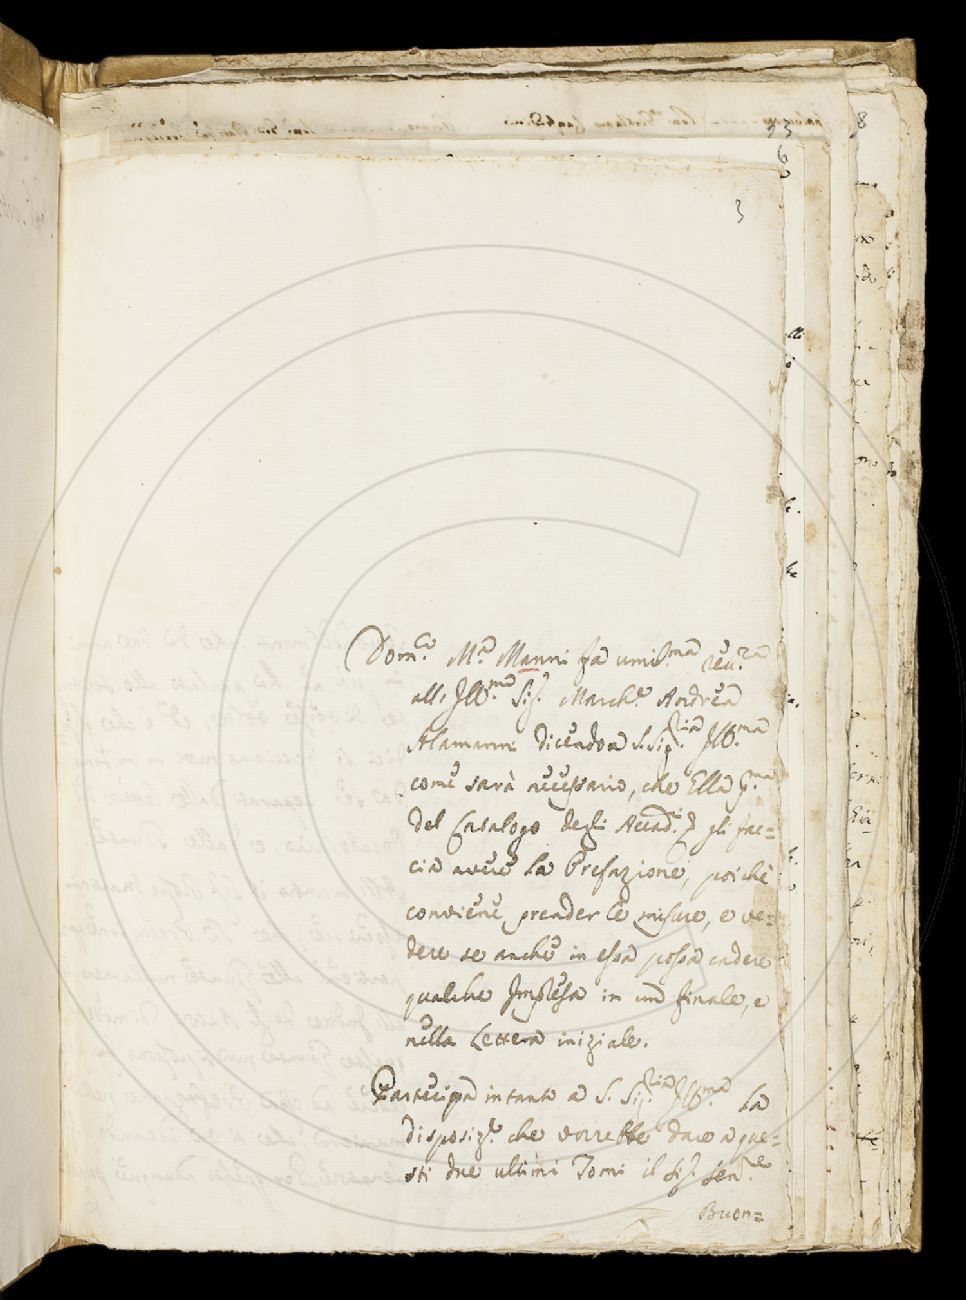 3
Dom.co M.a Manni fa umil.ma reu.za
all, Ill.mo Sig. March.e Andrea
Alamanni dicendo a S. Sig.ria Ill.ma
come sarà necessario, che Ella p.ma
del Catalogo degli Accad.i gli fac=
cia avere la Prefazione, poichè
conviene prender le misure, e ve=
dere se anche in essa possa cadere
qualche Impresa in un finale, e
nella Lettera iniziale.
Partecipa intanto a S. Sig.ria Ill.ma la
disposiz.e che vorrebbe dare a que=
sti due ultimi Tomi il Sig. Sen.re
Buon=